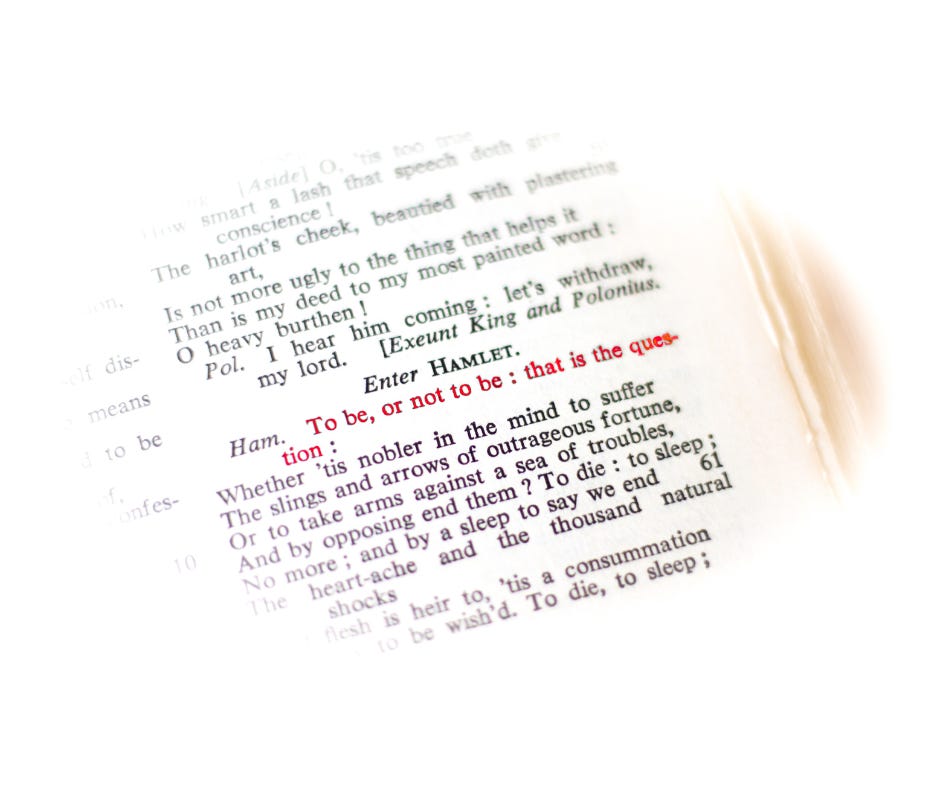 [Aside] O, 'tis too true
How smart a lash that speech doth give
conscience !
The harlot's cheek, beautied with plastering
art,
Is not more ugly to the thing that helps it
Than is my deed to my most painted word :
O heavy burthen !
Pol. I hear him coming : let's withdraw,
my lord. [Exeunt King and Polonius.
Enter HAMLET.
Ham. To be, or not to be : that is the ques-
tion :
Whether 'tis nobler in the mind to suffer
The slings and arrows of outrageous fortune,
Or to take arms against a sea of troubles,
And by opposing end them ? To die : to sleep ;
No more ; and by a sleep to say we end 61
The heart-ache and the thousand natural
shocks
flesh is heir to, 'tis a consummation
to be wish'd. To die, to sleep ;
dis-
means
to be
onfes-
10